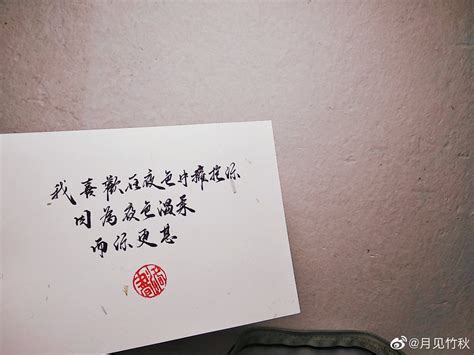 我喜歡在夜色中擁抱你
因為夜色溫柔
而你更甚
@月见竹秋